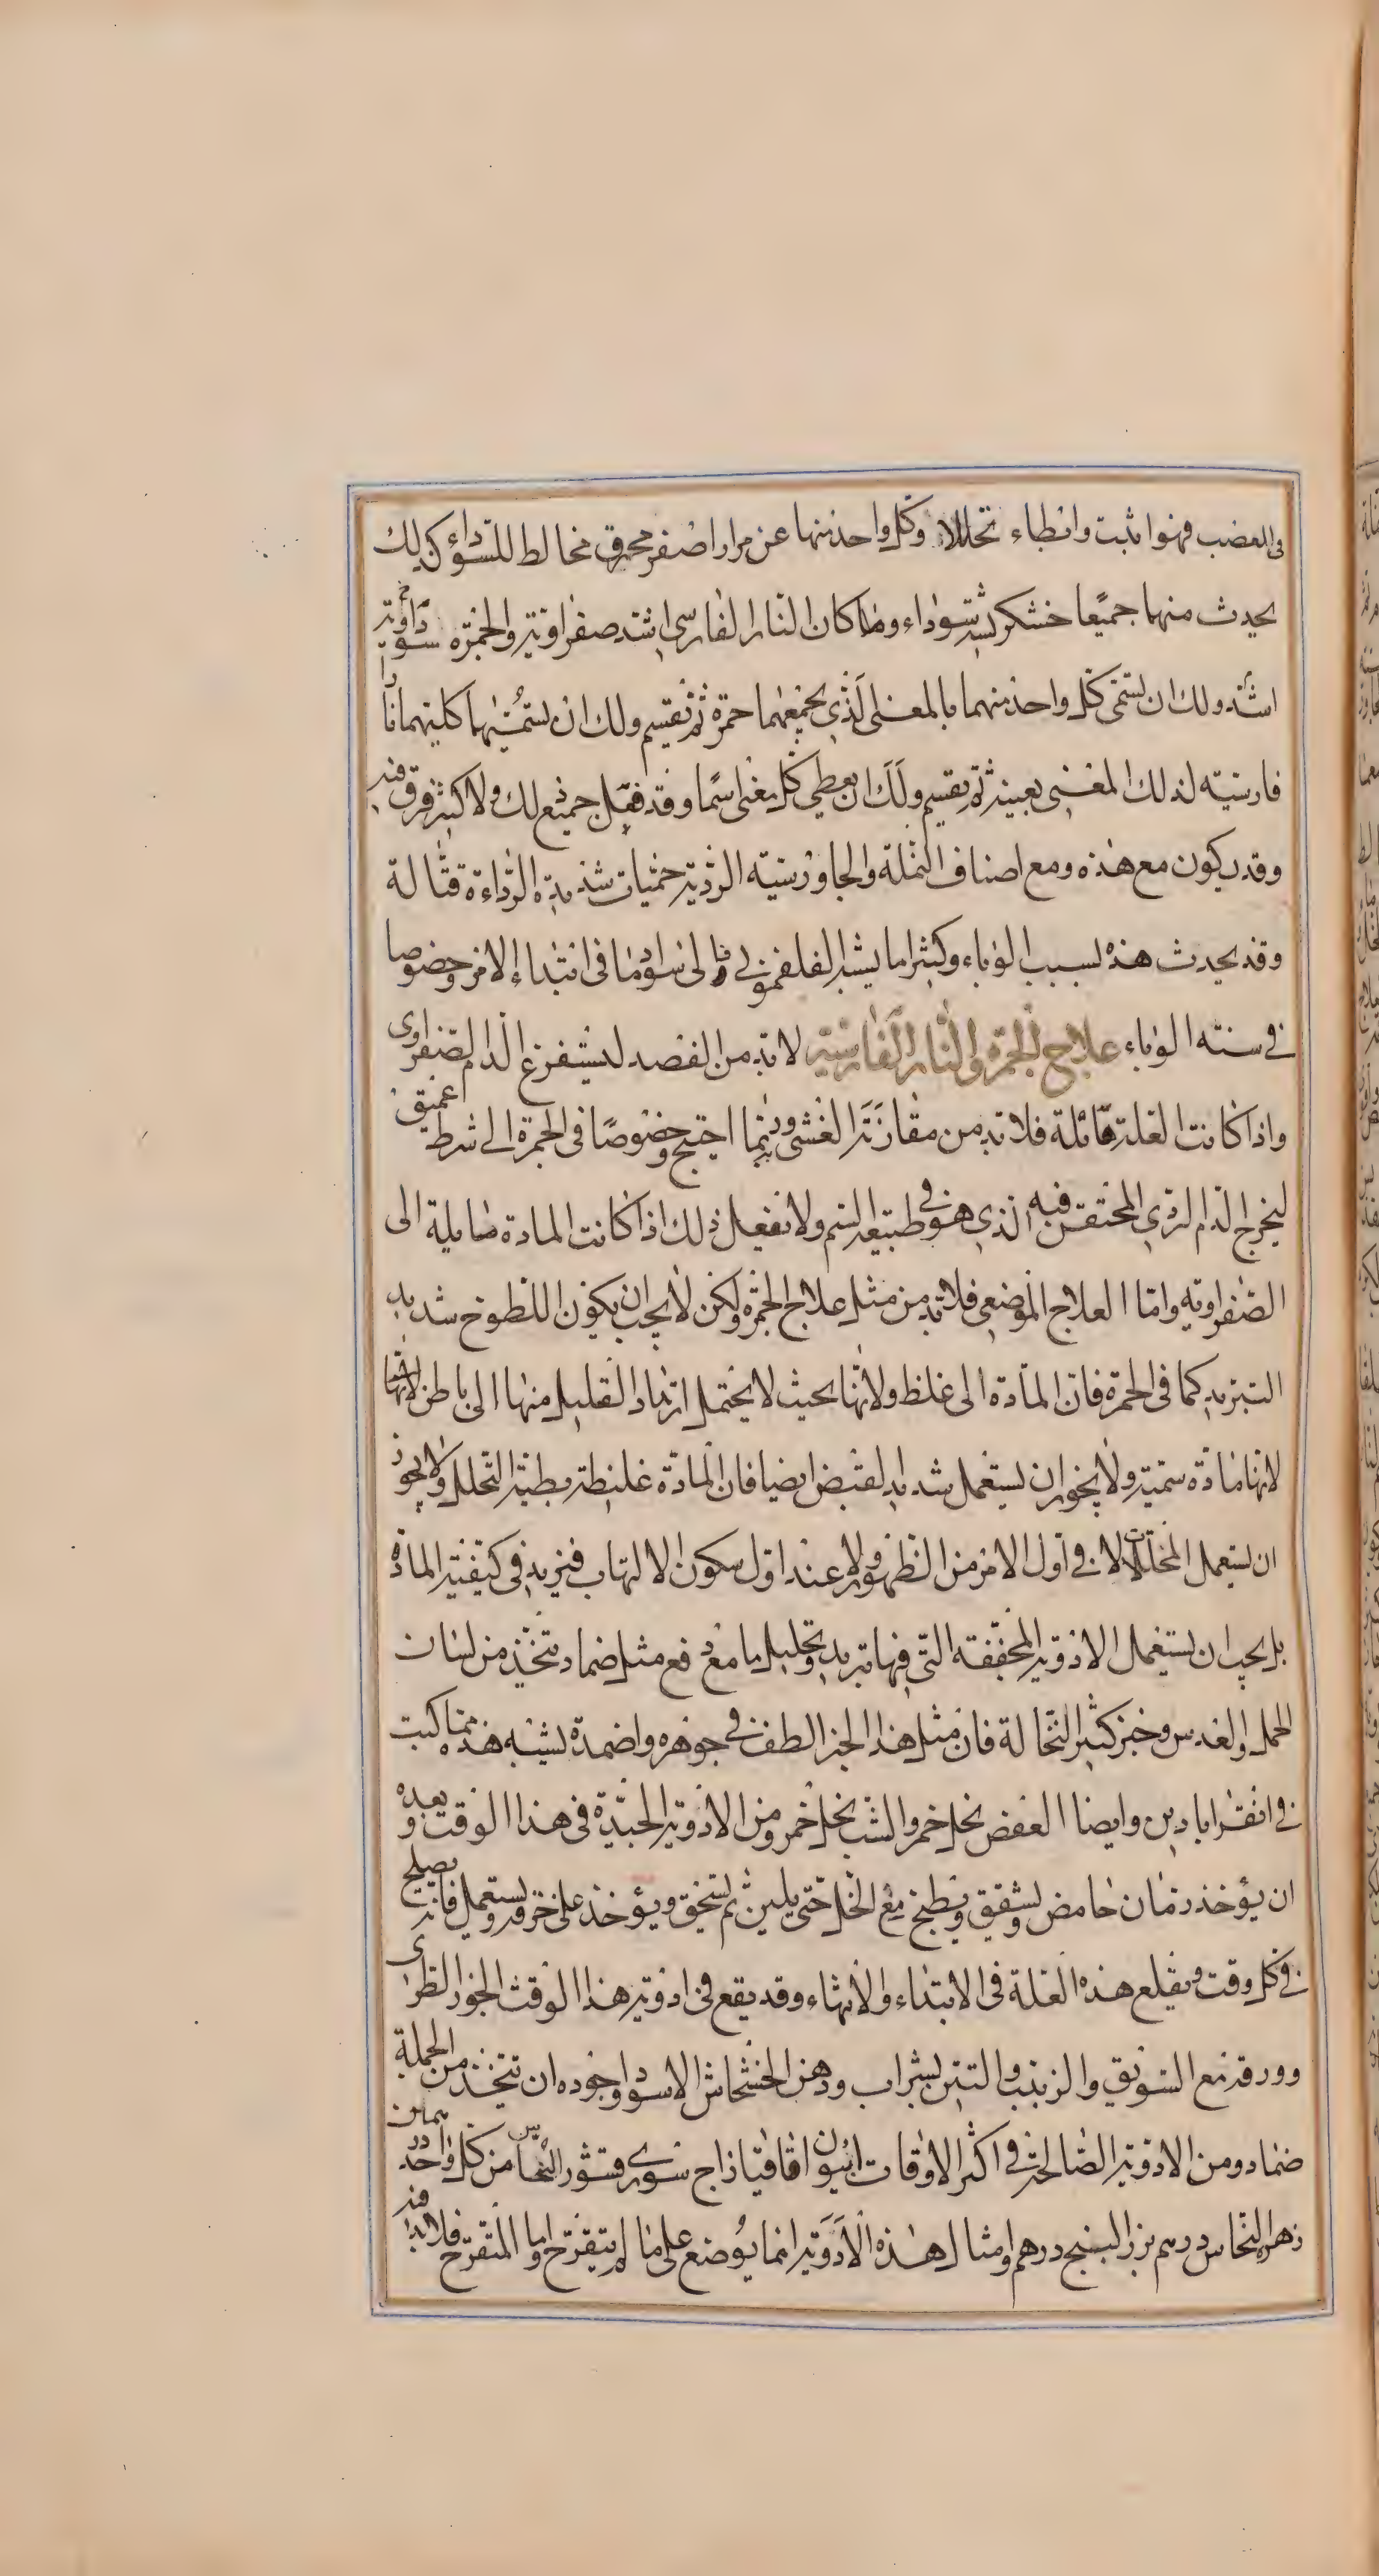 فى العضب فهو اثبت وابطاء تحللا وكل واحد منها عن مرار اصفر محرق مخالط للسوداء كذلك
يحدث منهما جميعا خشكريشة سوداء وما كان النار الفارسى اشد صفراوية والجمرة سوداوية
اشد ولك ان تسمى كل واحد منهما بالمعنى الذى يجمعهما جمرة ثم تقسم ولك ان تسميهما كليهما نارا
فارسية لذلك المعنى بعينه ثم تقسم ولك ان تعطى كل معنى اسما وقد فعل جميع ذلك ولا كثير فرق فيه
وقد يكون مع هذه ومع اصناف النملة والجاورسية الردية حميات شديدة الرداءة قتالة
وقد يحدث هذه بسبب الوباء وكثيرا ما يشبه الفلغمونى والى سواد ما فى ابتداء الامر وخصوصا
فى سنة الوباء علاج الجمرة والنار الفارسية لا بد من الفصد ليستفرغ الدم الصفراوى
واذا كانت العلة هائلة فلا بد من مقارنة الغشى وربما احتيج وخصوصا فى الجمرة الى شرط عميق
ليخرج الدم الردى المحتقن فيه الذى هو فى طبيعة السم ولا تفعل ذلك اذا كانت المادة مايلة الى
الصفراوية واما العلاج الموضعى فلا بد من مثل علاج الحمرة ولكن لا يجب ان يكون اللطوخ شديد
التبريد كما فى الحمرة فان المادة الى غلظ ولانها بحيث لا يحتمل ارتداد القليل منها الى باطن لانها
لانها مادة سمية ولا يجوز ان يستعمل شديد القبض ايضا فان المادة غليظة بطيئة التحلل ولا يجوز
ان يستعمل المحللات لا فى اول الامر من الظهور ولا عند اول سكون الالتهاب فيزيد فى كيفية المادة
بل يجب ان يستعمل الادوية المجففة التى فيها تبريد وتحليل ما مع دفع مثل ضماد متخذ من لسان
الحمل والعدس وخبز كثير النخالة فان مثل هذا الخبز الطف فى جوهره واضمدة يشبه هذه مما كتبت
فى اقراباذين وايضا العفص بخل خمر والشب بخل خمر ومن الادوية الجيدة فى هذا الوقت وبعده
ان يؤخذ رمان حامض ويشقق ويطبخ مع الخل حتى يلين ثم يسحق ويؤخذ على خرقة ويستعمل فانه يصلح
فى كل وقت ويقلع هذه العلة فى الابتداء والانتهاء وقد يقع فى ادوية هذا الوقت الجوز الطرى
وورقه مع السويق والزبيب والتين بشراب ودهن الخشخاش الاسود واجوده ان تتخذ من الجملة
ضماد ومن الادوية الصالحة فى اكثر الاوقات افيون اقاقيا زاج سورى قشور النحاس من كل واحد درهمان
زهرة النحاس درهم بزر البنج درهم وامثال هذه الادوية انما يوضع على ما لم يتقرح واما المتقرح فلا بد فيه